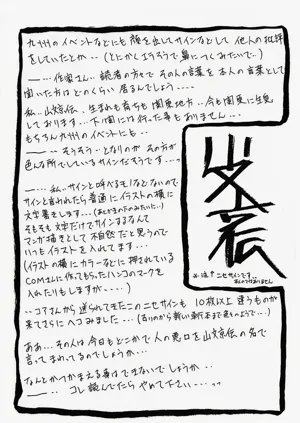 九州のイベントなどにも顔を出してサインなどして 他人の批評
をしていたとか‥(とにかくエラそうで鼻につくみたいで‥)
──‥作家さん‥ 読者の方々で その人の言葉を 本人の言葉として
聞いた方は どのくらい 居るんでしょう‥‥
私‥山文京伝‥生まれも育ちも関東地方‥今も関東に生息
しております‥下関には行った事もありません‥
もちろん九州のイベントにも‥
──‥そうそう‥となりのが その方が
色んな所でしているサインだそうです‥‥
──‥私‥サインと呼べるモノなどないので
サインと言われたら普通にイラストの横に
文字書きします‥‥
そもそも文字だけでサインするなんて
マンガ描きとして不自然だと思うので
いつもイラストを入れてます‥‥
(イラストの横にカラーなどに押されている
COMさんに作ってもらったハンコのマークを
入れたりもしますが‥‥)
‥コアさんから送られてきたこのニセサインも 10枚以上違うものが
来てさらにヘコみました‥‥
ああ‥その人は今日もどこかで人の悪口を山文京伝の名で
言ってまわってるのでしょうか‥‥
なんとかつかまえる事はできないでしょうか
──‥コレ読んでたら やめて下さい‥‥
山文京伝
※注↑ニセサインです